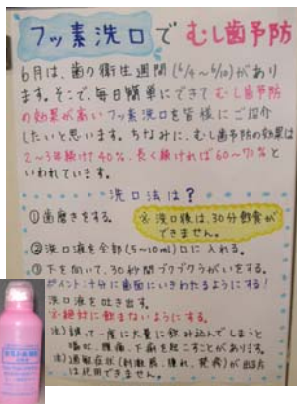 フッ素洗口でむし歯予防
6月は、歯の衛生週間(6/4〜6/10)があり
ます。そこで、毎日簡単にできてむし歯予防
の効果が高いフッ素洗口を皆様にご紹介
したいと思います。ちなみに、むし歯予防の効果は
2〜3年続けて40%、長く続ければ60〜71%と
いわれています。
洗口法は?
①歯磨きをする。
※洗口後は、30分飲食が
できません。
②洗口液を全部(5〜10ml)口に入れる。
③下を向いて、30秒間ブクブクうがいをする。
ポイント:十分に歯面にいきわたるようにする!
洗口液を吐き出す。
※絶対に飲まないようにする。
注)誤って一度に大量に飲み込んでしまうと
嘔吐、腹痛、下痢を起こすことがあります。
注)過敏症状(刺激感、腫れ、発疹)が出る方
は使用できません。